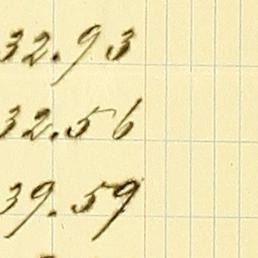 32.93
32.56
39.59